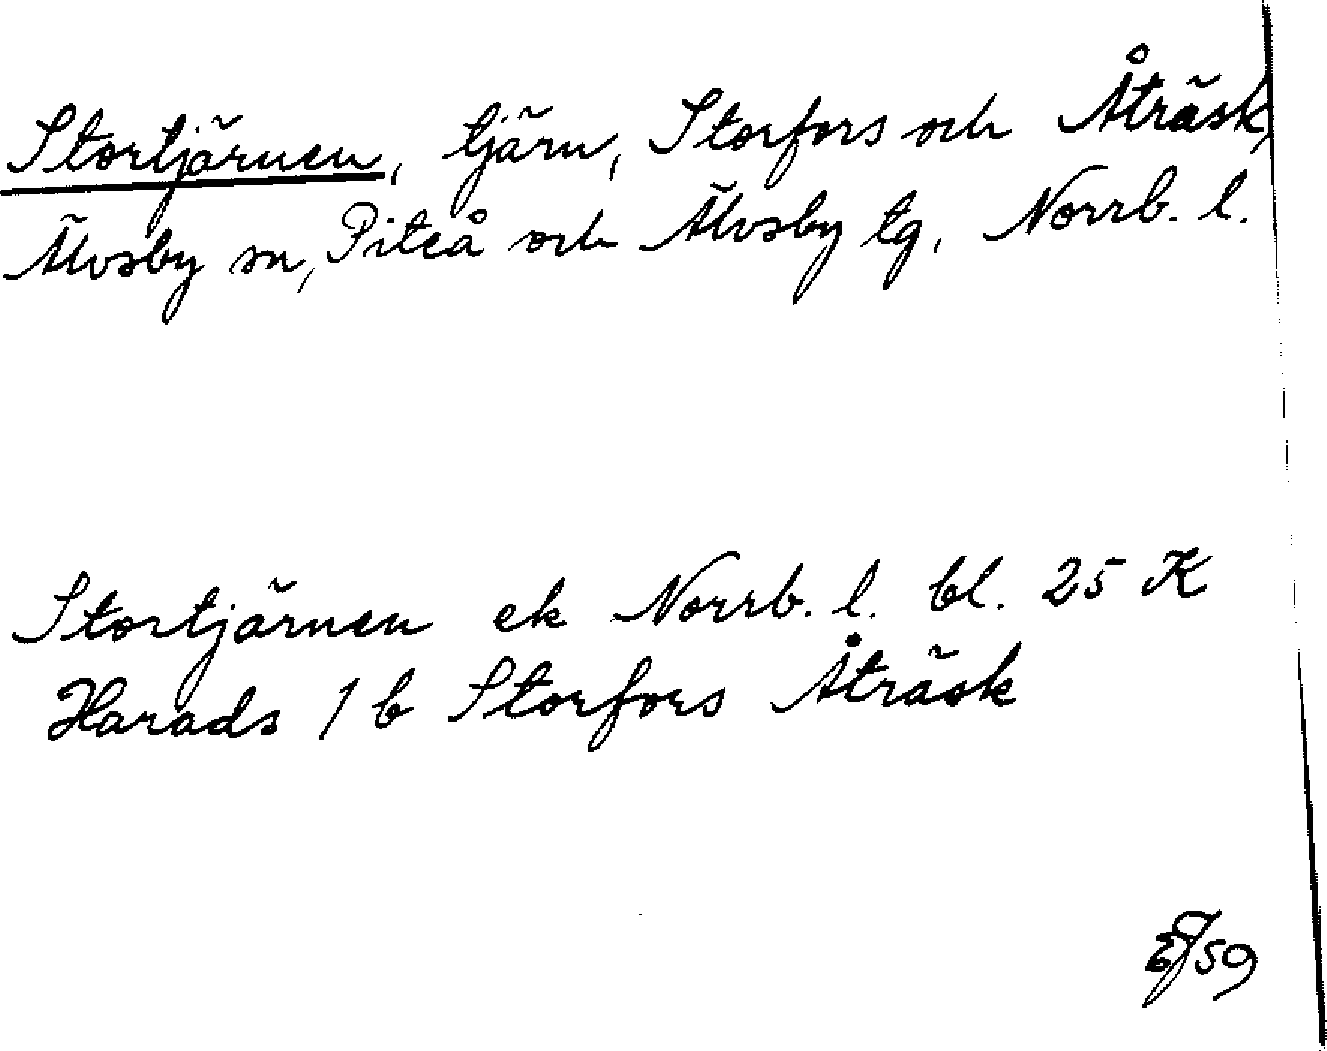 Stortjärnen, tjärn, Storfors och Åträsk,
Älvsby sn, Piteå och Älvsby tg, Norrb. l.
Stortjärnen ek Norrb. l. bl. 25 K
Harads 1 b Storfors Åträsk